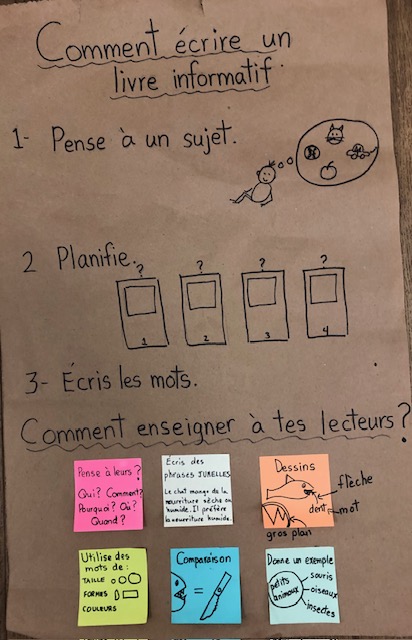 Comment écrire un
livre informatif
1- Pense à un sujet.
2 Planifie.
? ? ? ?
1 2 3 4
3- Écris les mots.
Comment enseigner à tes lecteurs?
Pense à leurs ?
Qui? Comment?
Pourquoi? Où?
Quand?
Écris des
phrases JUMELLES
Le chat mange de la
nourriture sèche ou
humide. Il préfère
la nourriture humide.
Dessins
flèche
dent
mot
gros plan
Utilise des
mots de:
TAILLE
FORMES
COULEURS
Comparaison
=
Donne un exemple
petits
animaux
souris
oiseaux
insectes